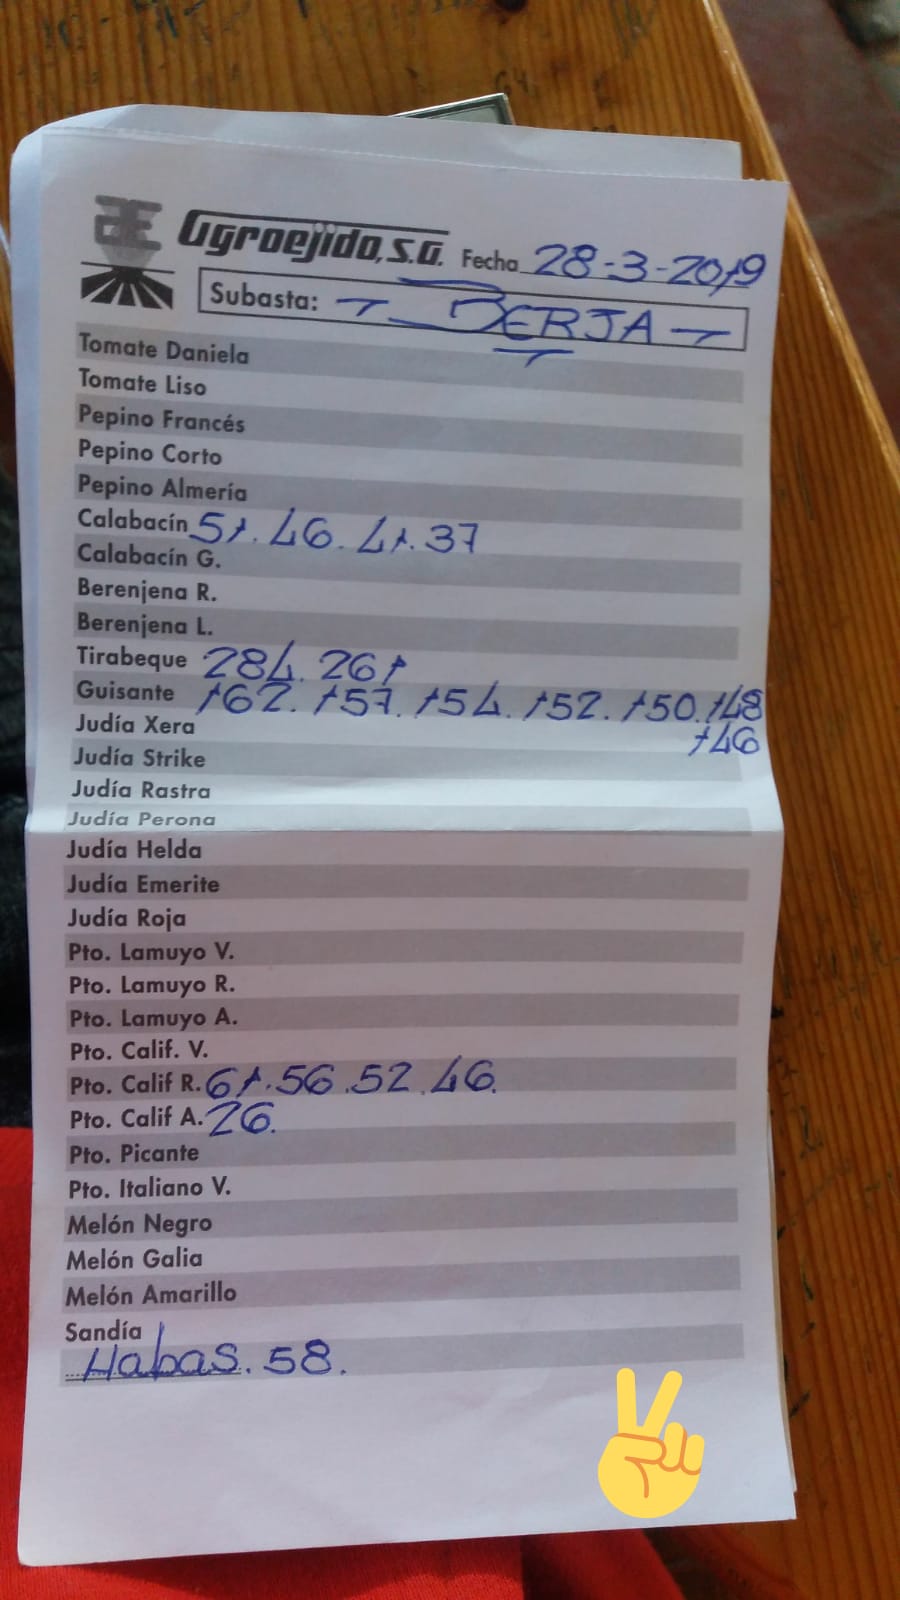 Agroejido, S.A. Fecha 28-3-2019
Subasta: - BERJA -
Tomate Daniela
Tomate Liso
Pepino Francés
Pepino Corto
Pepino Almería
Calabacín 51. 46. 41. 37
Calabacín G.
Berenjena R.
Berenjena L.
Tirabeque 284. 261
Guisante 162. 157. 154. 152. 150. 148
146
Judía Xera
Judía Strike
Judía Rastra
Judía Perona
Judía Helda
Judía Emerite
Judía Roja
Pto. Lamuyo V.
Pto. Lamuyo R.
Pto. Lamuyo A.
Pto. Calif. V.
Pto. Calif R. 61. 56. 52. 46.
Pto. Calif A. 26.
Pto. Picante
Pto. Italiano V.
Melón Negro
Melón Galia
Melón Amarillo
Sandía
Habas. 58.